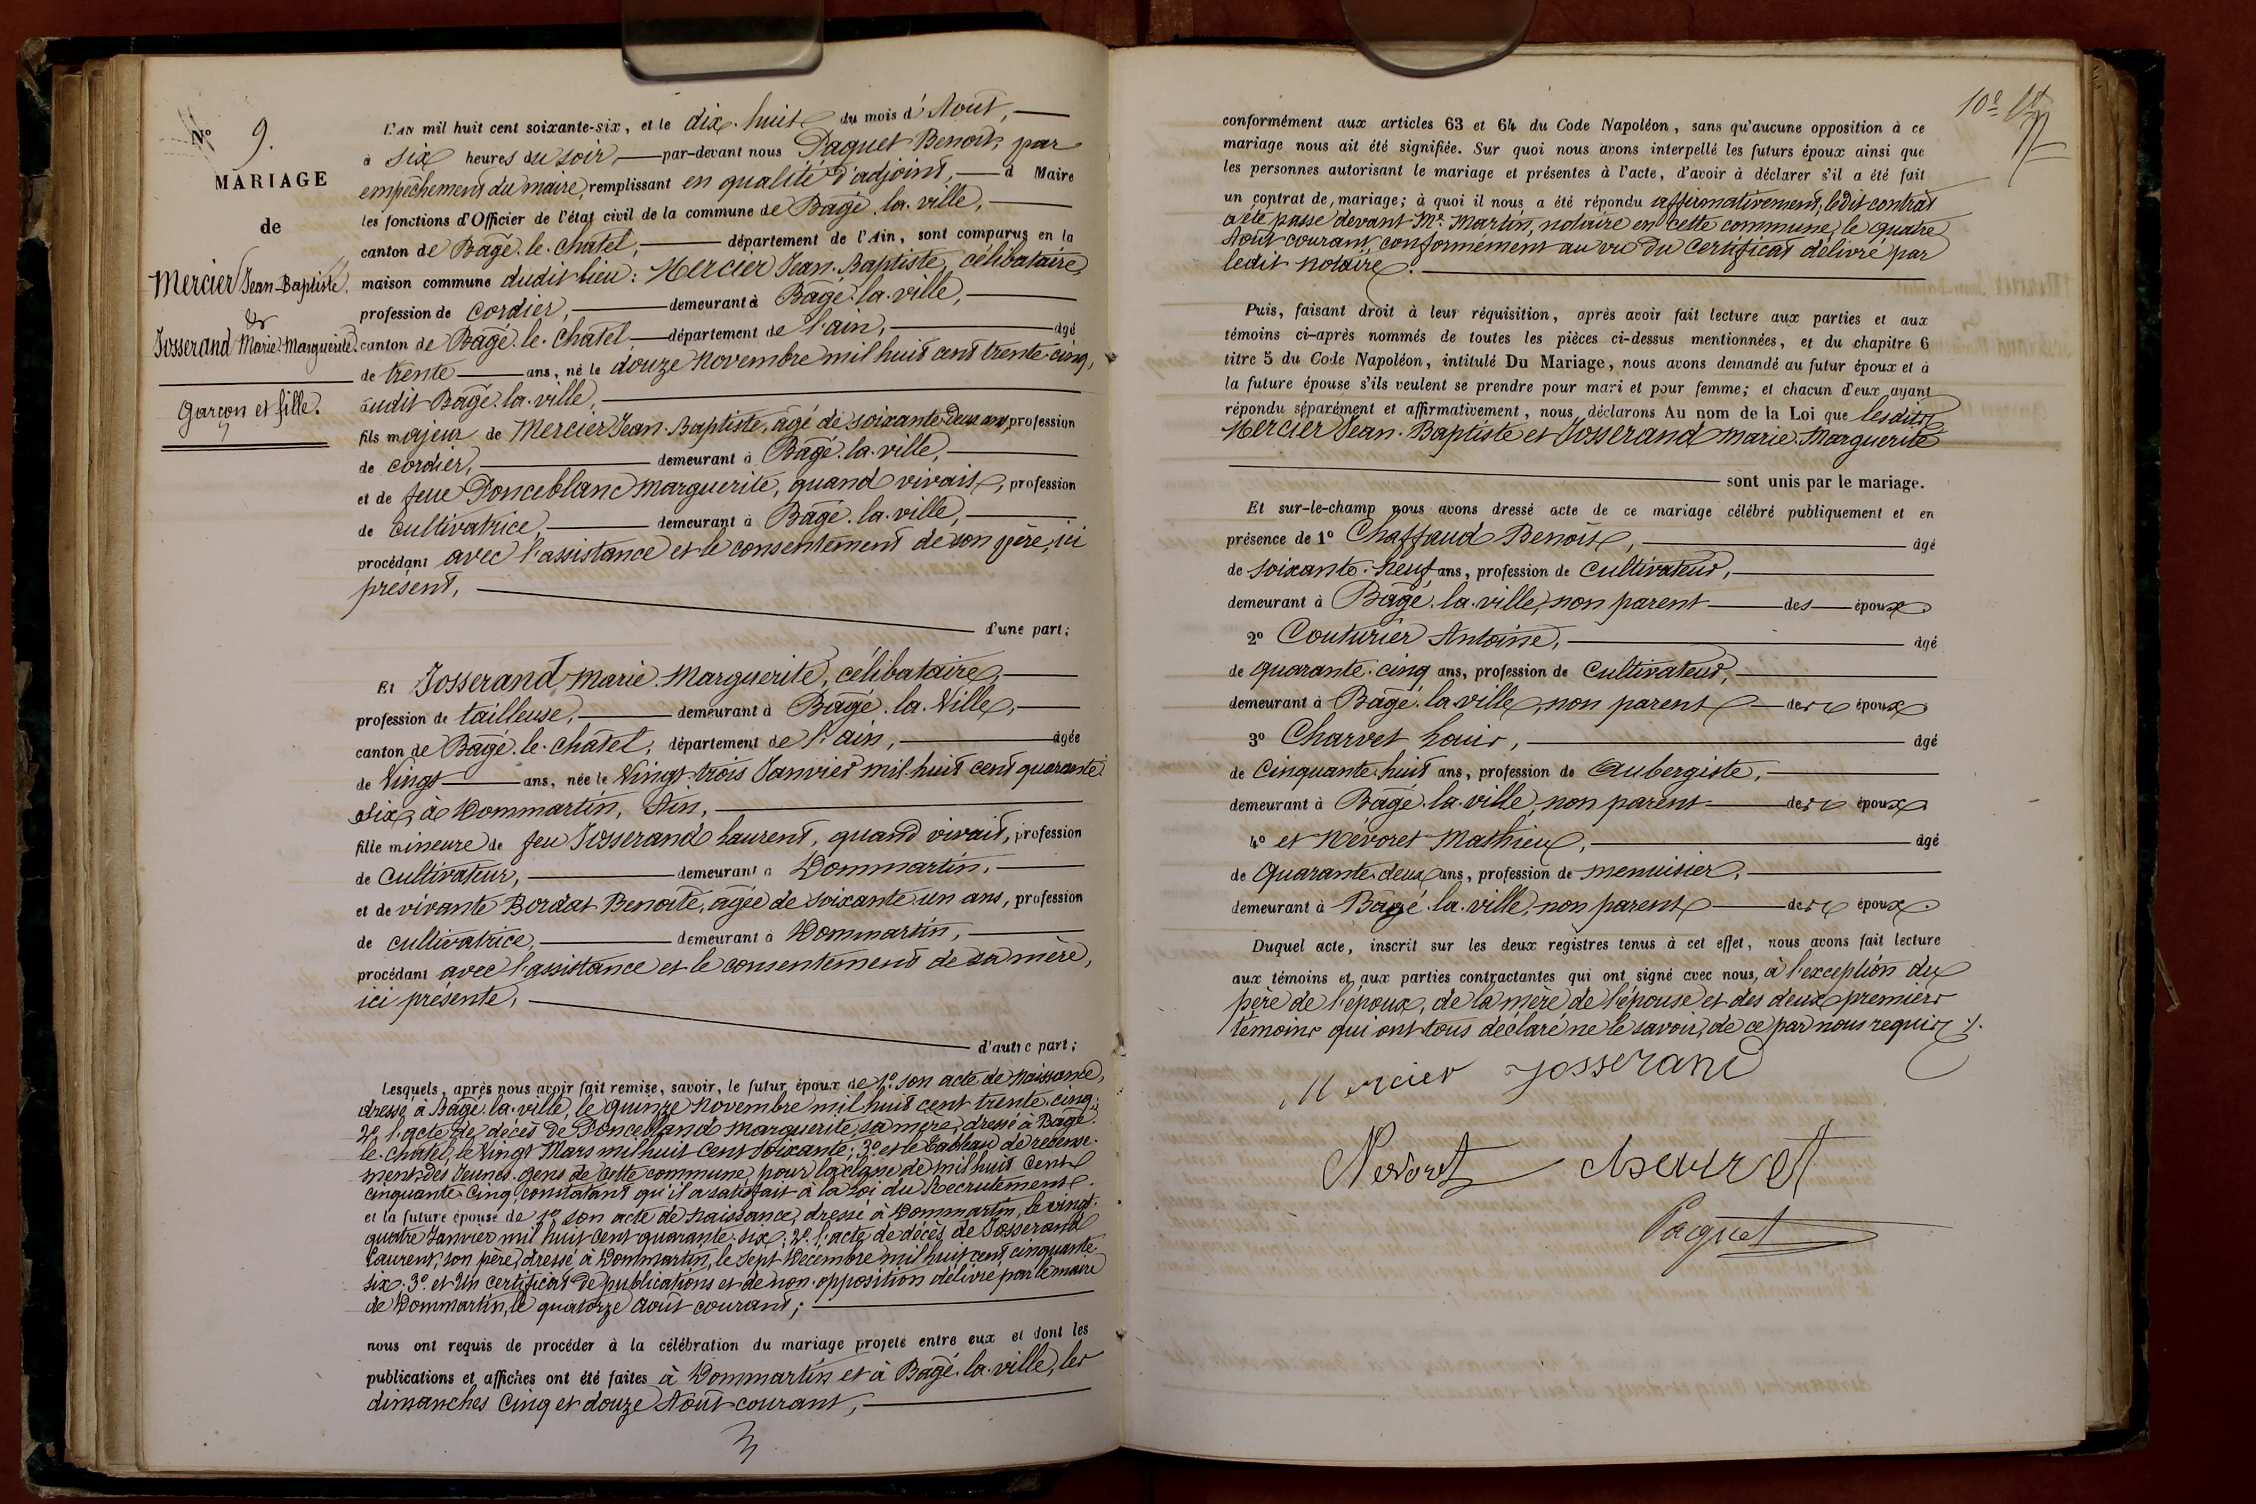 N° 9.
MARIAGE
de
Mercier Jean-Baptiste.
et
Josserand Marie-Marguerite.
Garçon et fille.
L'AN mil huit cent soixante-six, et le dix-huit du mois d'Août,
à six heures du soir, par-devant nous Paquet Benoit, par
empêchement du maire, remplissant en qualité d'adjoint, d Maire
les fonctions d'Officier de l'état civil de la commune de Bâgé-la-ville,
canton de Bâgé-le-châtel, département de l'Ain, sont comparus en la
maison commune dudit lieu: Mercier Jean-Baptiste, célibataire,
profession de cordier, demeurant à Bâgé-la-ville,
canton de Bâgé-le-châtel, département de l'ain, âgé
de trente ans, né le douze Novembre mil huit cent trente-cinq,
audit Bâgé-la-ville,
fils majeur de Mercier Jean-Baptiste, âgé de soixante-deux ans, profession
de cordier, demeurant à Bâgé-la-ville,
et de feue Ponceblanc Marguerite, quand vivait, profession
de cultivatrice, demeurant à Bâgé-la-ville,
procédant avec l'assistance et le consentement de son père, ici
présent,
d'une part;
Et Josserand Marie-Marguerite, célibataire,
profession de tailleuse, demeurant à Bâgé-la-Ville,
canton de Bâgé-le-châtel, département de l'ain, âgée
de Vingt ans, née le Vingt-trois Janvier mil-huit cent quarante-
six, à Dommartin, Ain,
fille mineure de feu Josserand Laurent, quand vivait, profession
de cultivateur, demeurant à Dommartin,
et de vivante Bordat Benoîte, âgée de soixante-un ans, profession
de cultivatrice, demeurant à Dommartin,
procédant avec l'assistance et le consentement de sa mère,
ici présente,
d'autre part;
Lesquels, après nous avoir fait remise, savoir, le futur époux de 1° son acte de naissance,
dressé à Bâgé-la-ville, le quinze Novembre mil huit cent trente-cinq;
2° l'acte de décès de Ponceblanc Marguerite, sa mère, dressé à Bâgé-
le-châtel, le Vingt Mars mil huit cent soixante; 3° et le tableau de recense-
ment des Jeunes-gens de cette commune, pour la classe de mil huit cent
cinquante-cinq, constatant qu'il a satisfait à la Loi du Recrutement.
et la future épouse de 1° son acte de naissance, dressé à Dommartin, le vingt-
quatre Janvier mil huit cent quarante-six; 2° l'acte de décès de Josserand
Laurent, son père, dressé à Dommartin, le sept Décembre mil huit cent cinquante-
six. 3° et un certificat de publications et de non-opposition délivré par le maire
de Dommartin, le quatorze août courant;
nous ont requis de procéder à la célébration du mariage projeté entre eux et dont les
publications et affiches ont été faites à Dommartin et à Bâgé-la-ville, les
dimanches cinq et douze Août courant,
conformément aux articles 63 et 64 du Code Napoléon, sans qu'aucune opposition à ce
mariage nous ait été signifiée. Sur quoi nous avons interpellé les futurs époux ainsi que
les personnes autorisant le mariage et présentes à l'acte, d'avoir à déclarer s'il a été fait
un contrat de mariage; à quoi il nous a été répondu affirmativement, ledit contrat
a été passé devant Me. Martin, notaire en cette commune, le quatre
Août courant, conformément au vu du certificat délivré par
ledit notaire.
Puis, faisant droit à leur réquisition, après avoir fait lecture aux parties et aux
témoins ci-après nommés de toutes les pièces ci-dessus mentionnées, et du chapitre 6
titre 5 du Code Napoléon, intitulé Du Mariage, nous avons demandé au futur époux et à
la future épouse s'ils veulent se prendre pour mari et pour femme; et chacun d'eux ayant
répondu séparément et affirmativement, nous déclarons Au nom de la Loi que lesdits
Mercier Jean-Baptiste et Josserand Marie-Marguerite
sont unis par le mariage.
Et sur-le-champ nous avons dressé acte de ce mariage célébré publiquement et en
présence de 1° Chaffaud Benoit, âgé
de soixante-neuf ans, profession de cultivateur,
demeurant à Bâgé-la-ville, non parent des époux.
2° Couturier Antoine, âgé
de quarante-cinq ans, profession de cultivateur,
demeurant à Bâgé-la-ville, non parent des époux
3° Charvet Louis, âgé
de cinquante-huit ans, profession de aubergiste,
demeurant à Bâgé-la-ville, non parent des époux
4° et Névoret Mathieu, âgé
de quarante-deux ans, profession de menuisier,
demeurant à Bâgé-la-ville, non parent des époux.
Duquel acte, inscrit sur les deux registres tenus à cet effet, nous avons fait lecture
aux témoins et aux parties contractantes qui ont signé avec nous, à l'exception du
père de l'époux, de la mère de l'épouse et des deux premiers
témoins qui ont tous déclaré ne le savoir, de ce par nous requis.
Mercier Josserand
Nevoret
Paquet